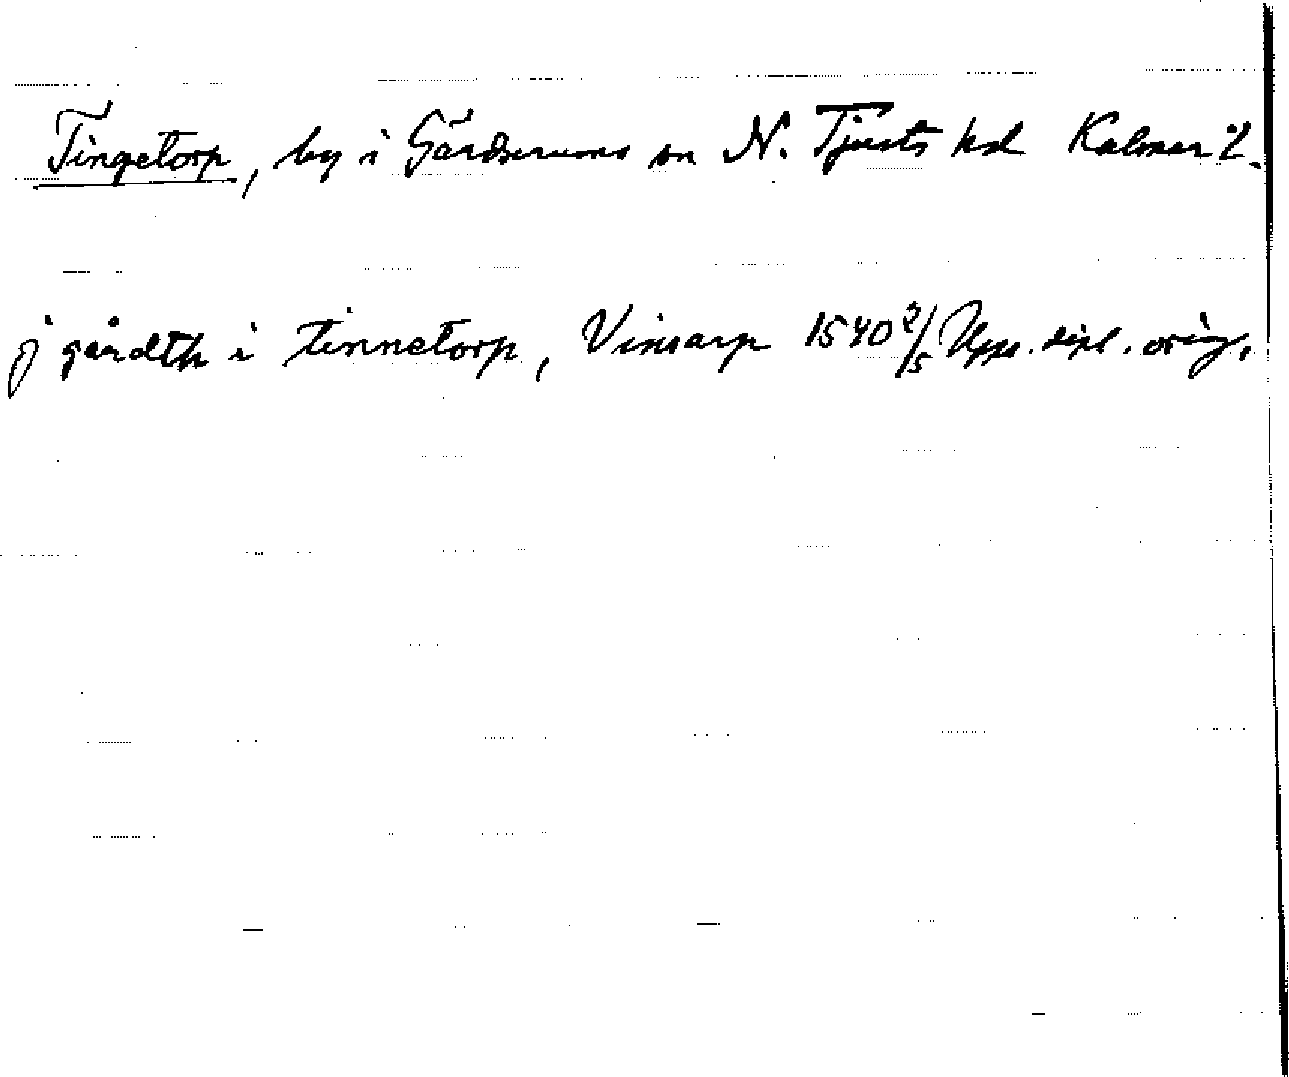 Tingetorp, by i Gärdserums sn N. Tjusts hd Kalmar l.
j gårdth i tinnetorp, Vinsarp 1540 2/5 Upps. dipl. orig.